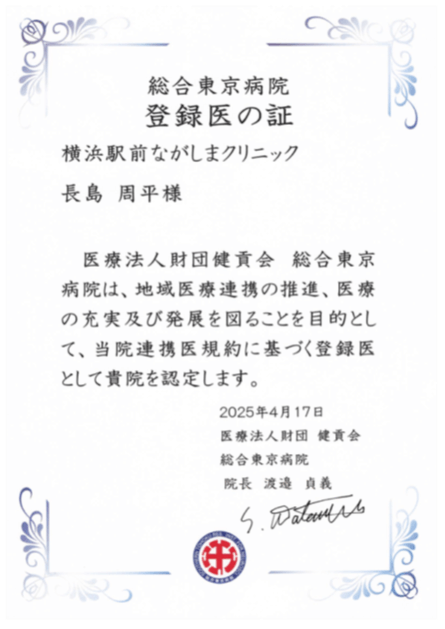 総合東京病院
登録医の証
横浜駅前ながしまクリニック
長島 周平様
医療法人財団健貢会 総合東京
病院は、地域医療連携の推進、医療
の充実及び発展を図ることを目的とし
て、当院連携医規約に基づく登録医
として貴院を認定します。
2025年4月17日
医療法人財団 健貢会
総合東京病院
院長 渡邉 貞義
S. Watanabe